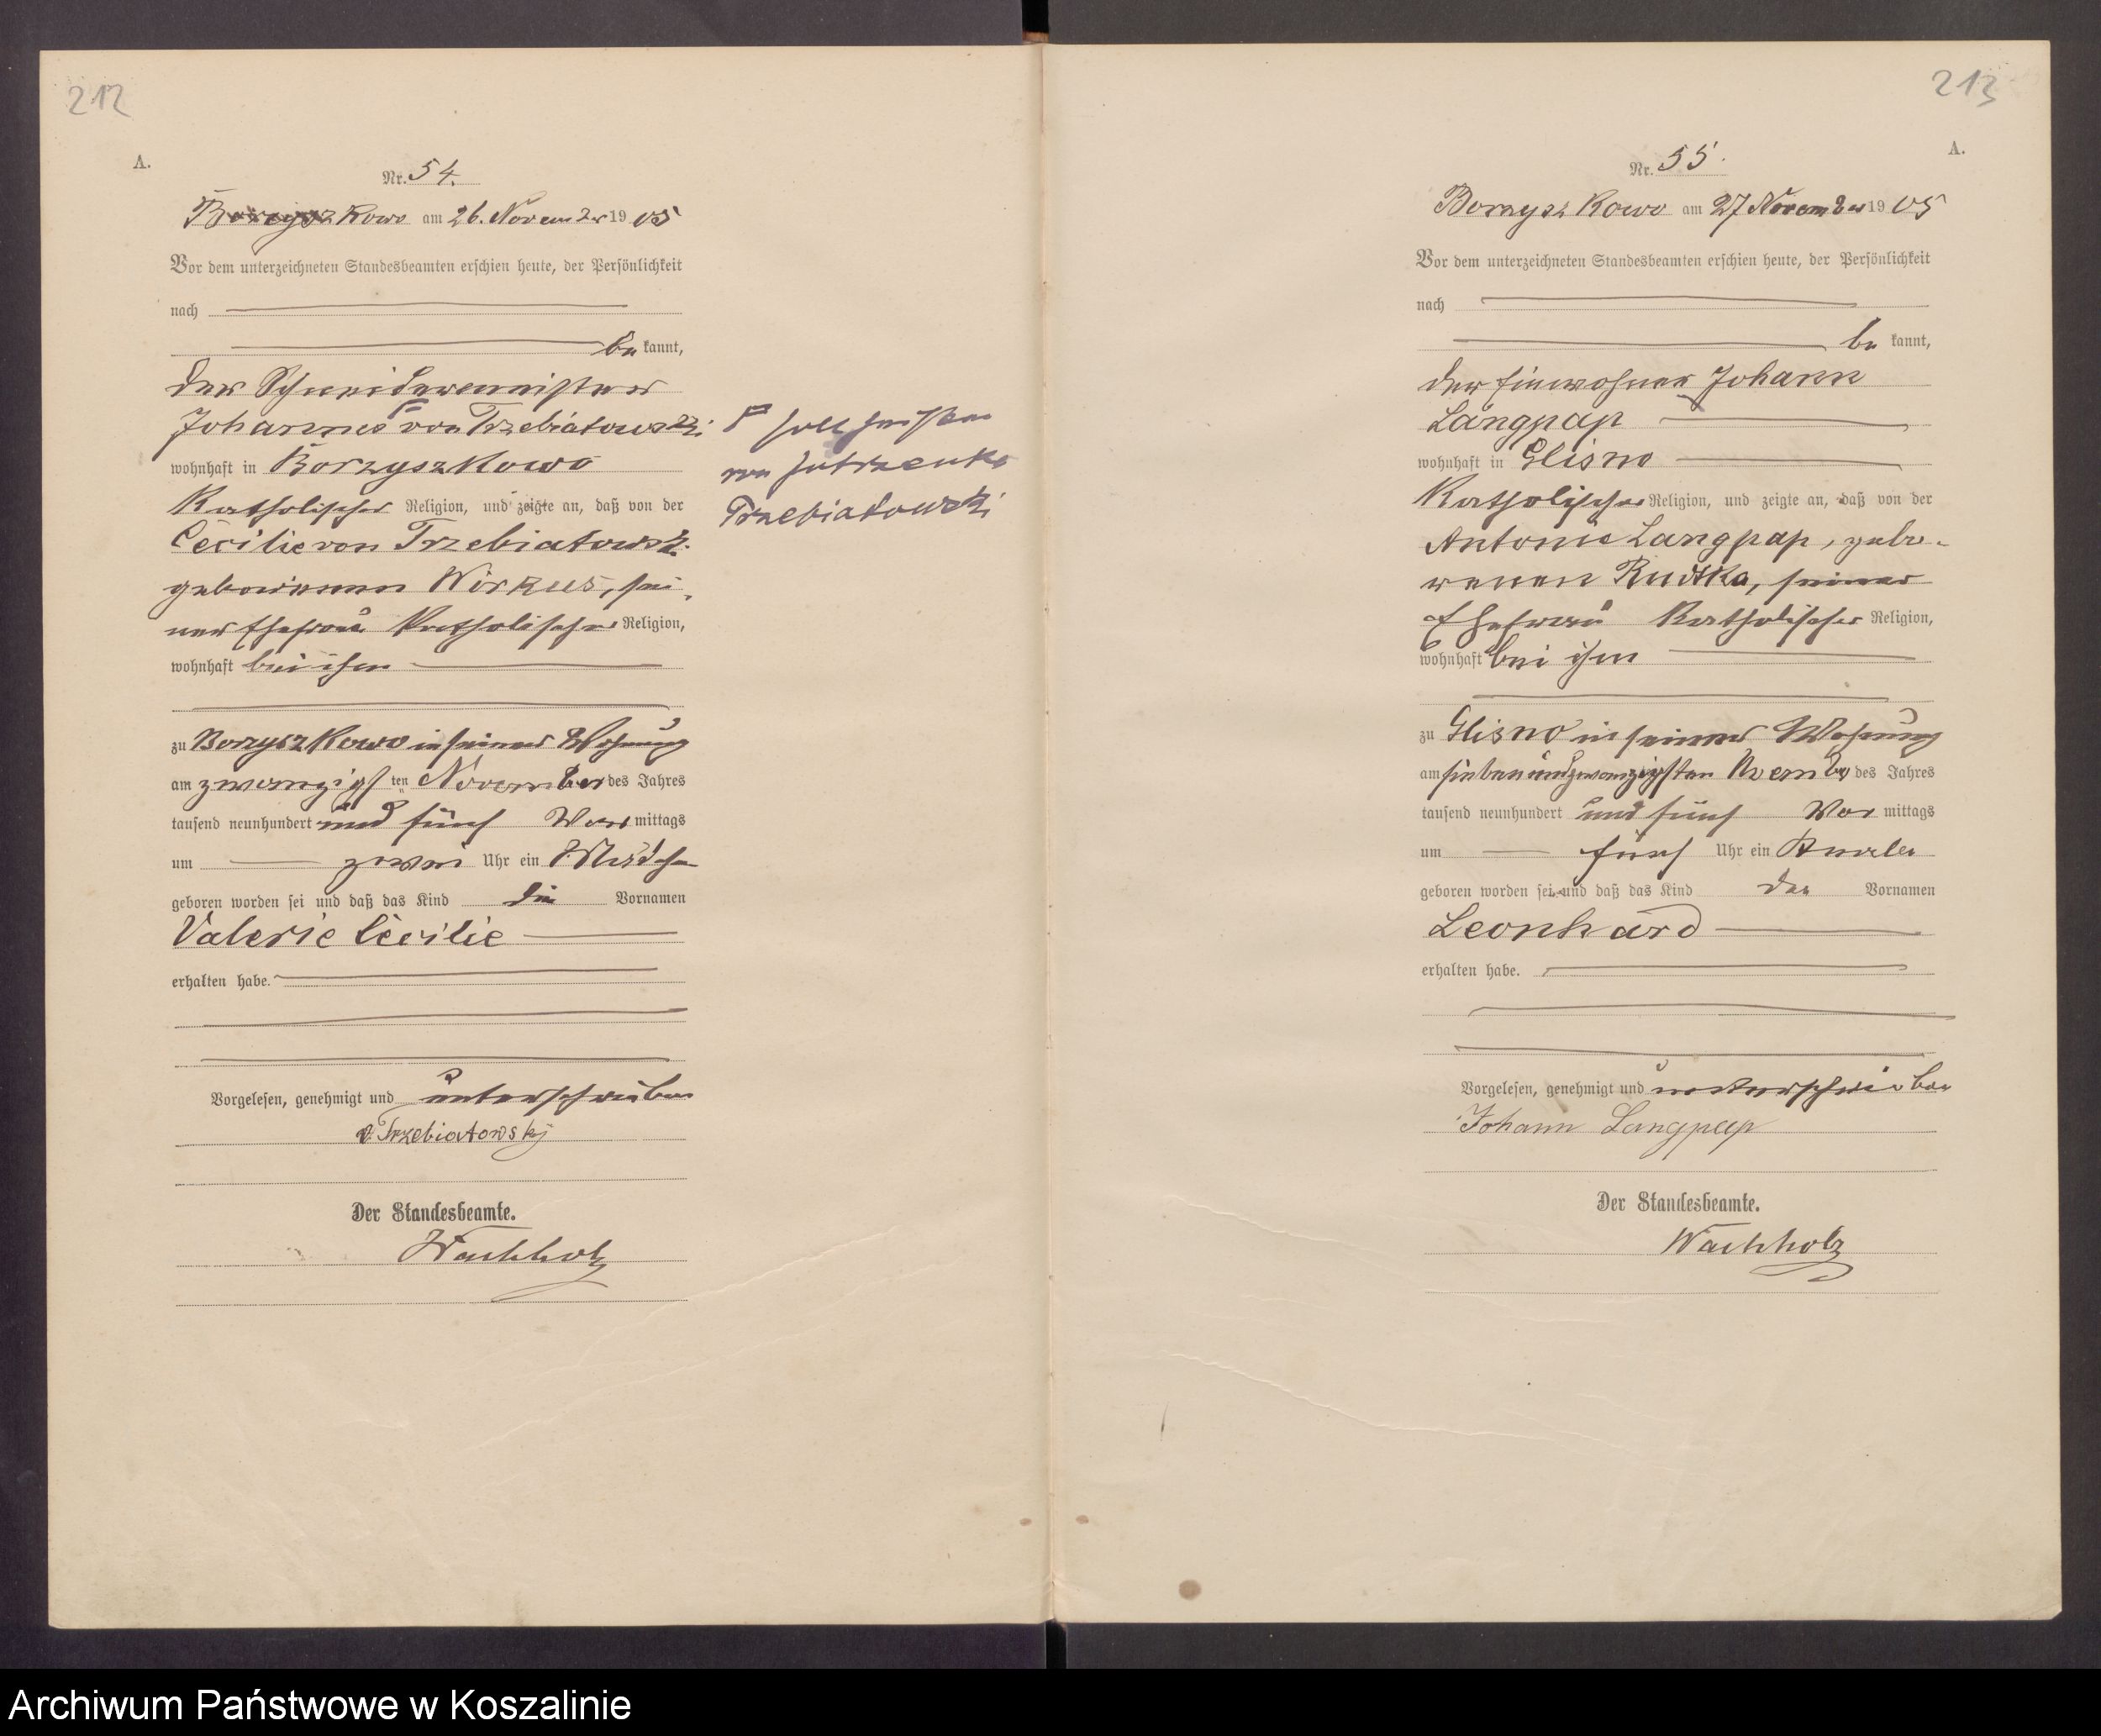 212
A.
Nr. 54.
Borzyszkowo am 26. November 1905
Vor dem unterzeichneten Standesbeamten erschien heute, der Persönlichkeit
nach
bekannt,
der Schneidermeister
Johannes von Trzebiatowski
wohnhaft in Borzyszkowo
Katholischer Religion, und zeigte an, daß von der
Cecilie von Trzebiatowski
geborenen Wirkus, sei-
ner Ehefrau Katholischer Religion,
wohnhaft bei ihm
zu Borzyszkowo in seiner Wohnung
am zwanzigsten November des Jahres
tausend neunhundert und fünf Vormittags
um zwei Uhr ein Mädchen
geboren worden sei und daß das Kind die Vornamen
Valerie Cecilie
erhalten habe.
Vorgelesen, genehmigt und unterschrieben
v Trzebiatowsky
Der Standesbeamte.
Wachholz
soll heißen
von Jutrzenka
Trzebiatowski
213
A.
Nr. 55.
Borzyszkowo am 27 November 1905
Vor dem unterzeichneten Standesbeamten erschien heute, der Persönlichkeit
nach
bekannt,
der Einwohner Johann
Langpap
wohnhaft in Glisno
Katholischer Religion, und zeigte an, daß von der
Antonie Langpap, gebo-
renen Rudtka, seiner
Ehefrau Katholischer Religion,
wohnhaft bei ihm
zu Glisno in seiner Wohnung
am siebenundzwanzigsten November des Jahres
tausend neunhundert und fünf Vormittags
um fünf Uhr ein Knabe
geboren worden sei und daß das Kind den Vornamen
Leonhard
erhalten habe.
Vorgelesen, genehmigt und unterschrieben
Johann Langpap
Der Standesbeamte.
Wachholz
Archiwum Państwowe w Koszalinie